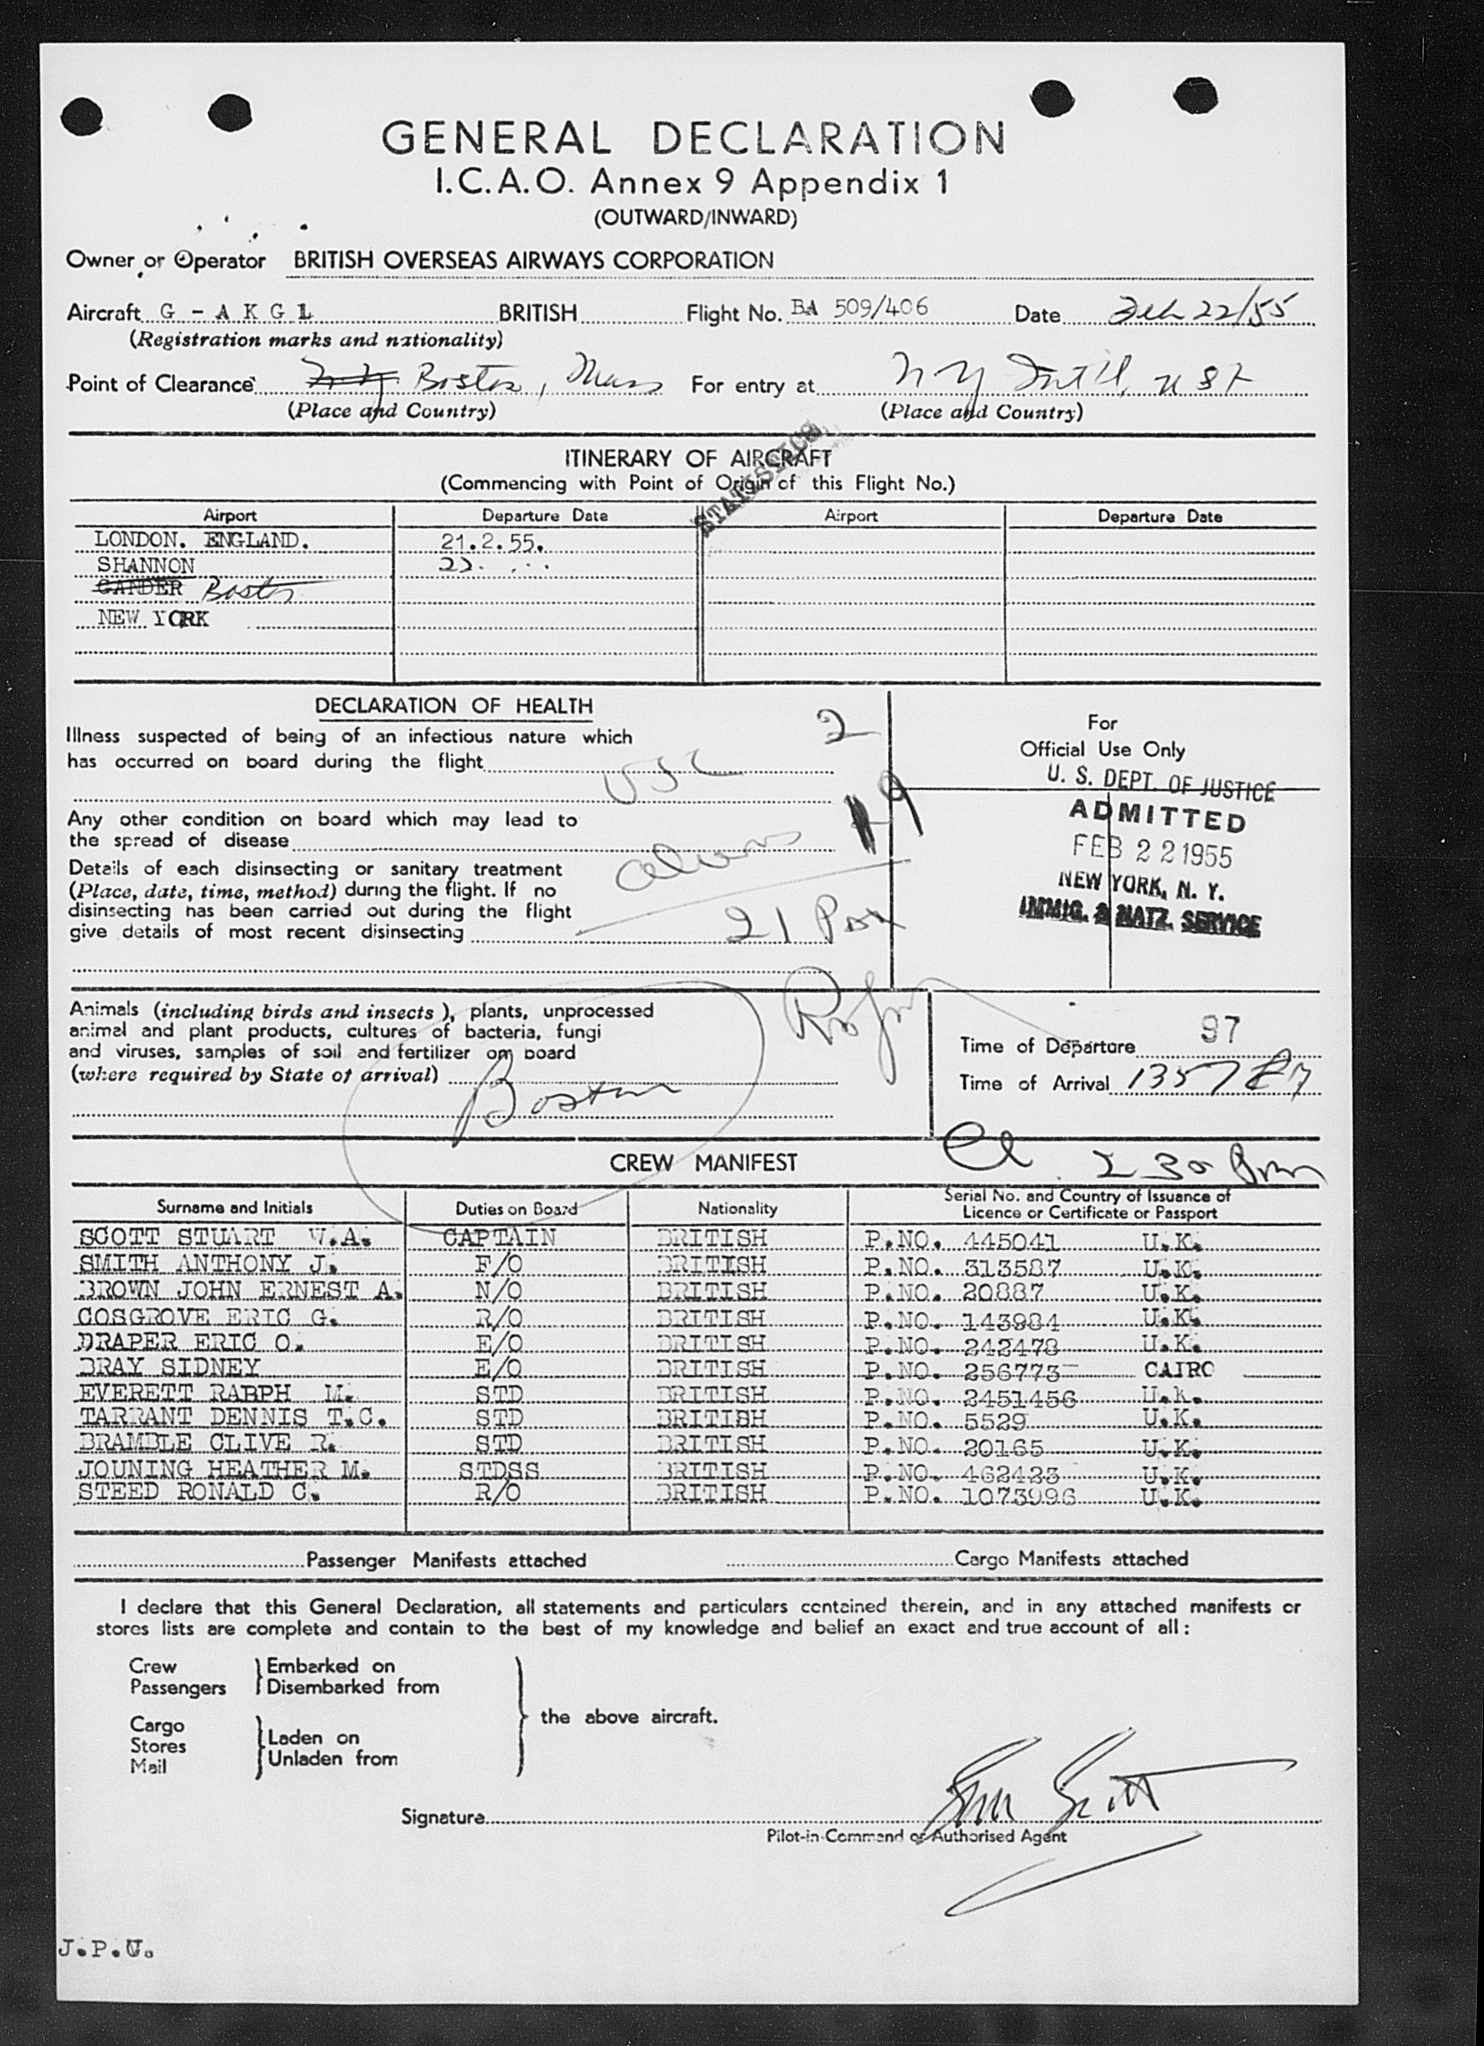 GENERAL DECLARATION
I.C.A.O. Annex 9 Appendix 1
(OUTWARD/INWARD)
Owner or Operator BRITISH OVERSEAS AIRWAYS CORPORATION
Aircraft G - A K G L BRITISH Flight No. BA 509/406 Date Feb 22/55
(Registration marks and nationality)
Point of Clearance N Y Boston, Mass For entry at N Y Int'l, USA
(Place and Country) (Place and Country)
ITINERARY OF AIRCRAFT
(Commencing with Point of Origin of this Flight No.)
STATISTICS
Airport Departure Date Airport Departure Date
LONDON. ENGLAND. 21.2.55.
SHANNON 22.
GANDER Boston
NEW YORK
DECLARATION OF HEALTH
Illness suspected of being of an infectious nature which
has occurred on board during the flight
USC 2
Any other condition on board which may lead to
the spread of disease
aliens 19
Details of each disinsecting or sanitary treatment
(Place, date, time, method) during the flight. If no
disinsecting has been carried out during the flight
give details of most recent disinsecting
21 Pax
For
Official Use Only
U. S. DEPT. OF JUSTICE
ADMITTED
FEB 22 1955
NEW YORK, N. Y.
IMMIG. & NATZ. SERVICE
Animals (including birds and insects), plants, unprocessed
animal and plant products, cultures of bacteria, fungi
and viruses, samples of soil and fertilizer on board
(where required by State of arrival)
Boston
Time of Departure 97
Time of Arrival 1357
2 30 Pm
CREW MANIFEST
Surname and Initials Duties on Board Nationality Serial No. and Country of Issuance of
Licence or Certificate or Passport
SCOTT STUART W.A. CAPTAIN BRITISH P.NO. 445041 U.K.
SMITH ANTHONY J. F/O BRITISH P.NO. 313587 U.K.
BROWN JOHN ERNEST A. N/O BRITISH P.NO. 20887 U.K.
COSGROVE ERIC G. R/O BRITISH P.NO. 143984 U.K.
DRAPER ERIC O. E/O BRITISH P.NO. 242478 U.K.
BRAY SIDNEY E/O BRITISH P.NO. 256773 CAIRO
EVERETT RABPH M. STD BRITISH P.NO. 2451456 U.K.
TARRANT DENNIS T.C. STD BRITISH P.NO. 5529 U.K.
BRAMBLE CLIVE R. STD BRITISH P.NO. 20165 U.K.
JOUNING HEATHER M. STDSS BRITISH P.NO. 462423 U.K.
STEED RONALD C. R/O BRITISH P.NO. 1073996 U.K.
Passenger Manifests attached Cargo Manifests attached
I declare that this General Declaration, all statements and particulars contained therein, and in any attached manifests or
stores lists are complete and contain to the best of my knowledge and belief an exact and true account of all :
Crew Embarked on
Passengers Disembarked from
the above aircraft.
Cargo
Stores Laden on
Mail Unladen from
Signature
Pilot-in-Command or Authorised Agent
J.P.U.